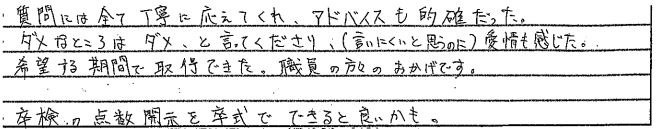 ・質問には全て丁寧に応えてくれ、アドバイスも的確だった。
・ダメなところはダメ、と言ってくださり、(言いにくいと思うのに)愛情も感じた。
希望する期間で取得できた。職員の方々のおかげです。
・卒検の点数開示を卒式でできると良いかも。